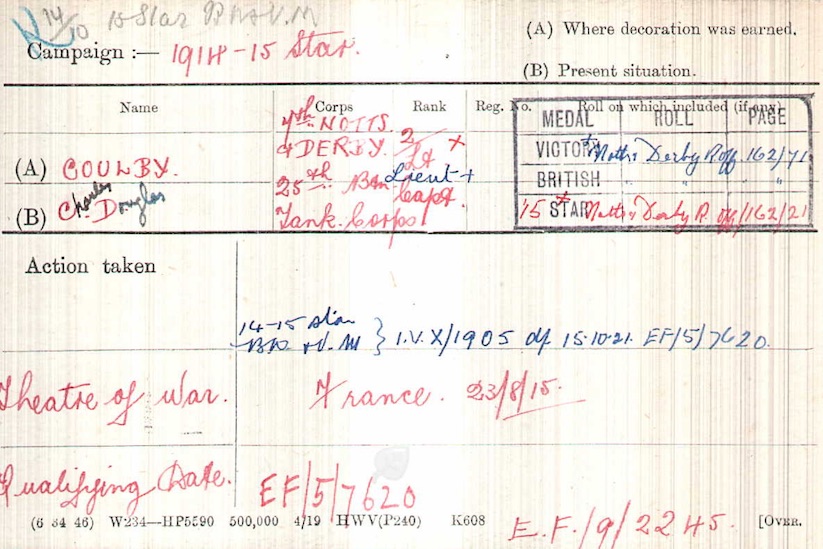 14/10 15 Star B W & V.M
Campaign :— 1914-15 Star.
(A) Where decoration was earned.
(B) Present situation.
Name Corps Rank Reg. No. Roll on which included (if any)
MEDAL ROLL PAGE
7th NOTTS. 2/Lt x
(A) COULBY. & DERBY.
VICTORY Notts & Derby R Off 162/71
25th Bn Lieut +
BRITISH " " "
(B) C. Charles Douglas Tank Corps Capt.
'15 STAR Notts & Derby R. Off/162/21
Action taken
14-15 Star
BW & V. M } I.V. X/1905 df 15.10.21. EF/5/7620.
Theatre of War. France. 23/8/15.
Qualifying Date. EF/5/7620
(6 34 46) W234—HP5590 500,000 4/19 HWV(P240) K608 E.F./9/2245. [OVER.